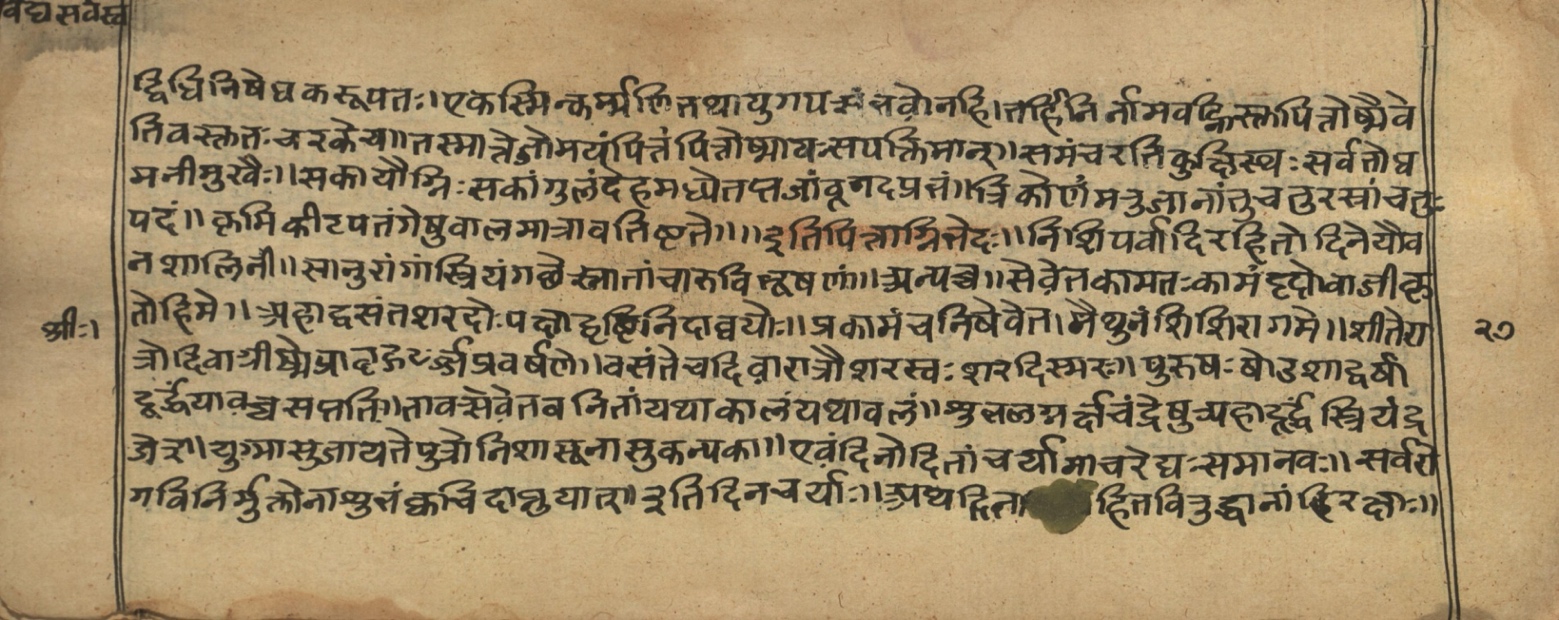 वैद्य सर्वस्व
द्विधिनिषेधकरूपतः। एकस्मिन्कर्म्मणि तथा युगप नहि। तर्हि निर्नामवह्निस्त्क पित्तोष्मैवे
तिवस्त्कतः चरके च॥ तस्मात्तेजोमयं पित्तं पित्तोष्मा यः सपक्तिमान्॥ समंचरति कुक्षिस्थः सर्वतो ध
मनीमुखैः॥ सकायौग्निः सकांगुलं देहमध्ये तप्तजांबूनदप्रभं॥ त्रिकोणं मनुजानां तु चतुरस्रां चतुः
पदं॥ कृमिकीटपतंगेषु वालमात्रावतिष्टते॥॥ इति पित्ताग्निभेदः॥ निशि पर्वादिरहितो दिने यौव
नशालिनी॥ सानुरांगां स्त्रियं गछे स्नातां चारुविभूषणां॥ अन्यच्च॥ सेवेत कामतः कामं वाजीकृ
तो हिमे॥ त्र्यहाद्वसंतशरदोः पक्षा निदाघयोः॥ प्रकामं च निषेवेत। मैथुनं शिशिरागमे॥ शीते रा
त्रो दिवा ग्रीष्मे प्रवर्षणे॥ वसंते च दिवारात्रौ शरस्वः शरदि स्मरः॥ पुरुषः षोडशाद्वर्षा
दूर्द्धं यावच्च सप्ततिः॥ तावत्सेवेत वनितां यथाकालं यथावलं॥ चंद्रेषु त्र्यहादूर्द्धं स्त्रियं व्र
जेत्॥ युग्मासु जायते पुत्रो निशासूनासु कन्यका॥ एवं दिनोदितां चर्यामाचरेद्यः समानवः॥ सर्वरो
गविनिर्मुक्तो नाशुभं क्वचिदाप्नुयात्॥ इति दिनचर्याः॥ अथ हितविरुद्धानां
श्रीः।
२७